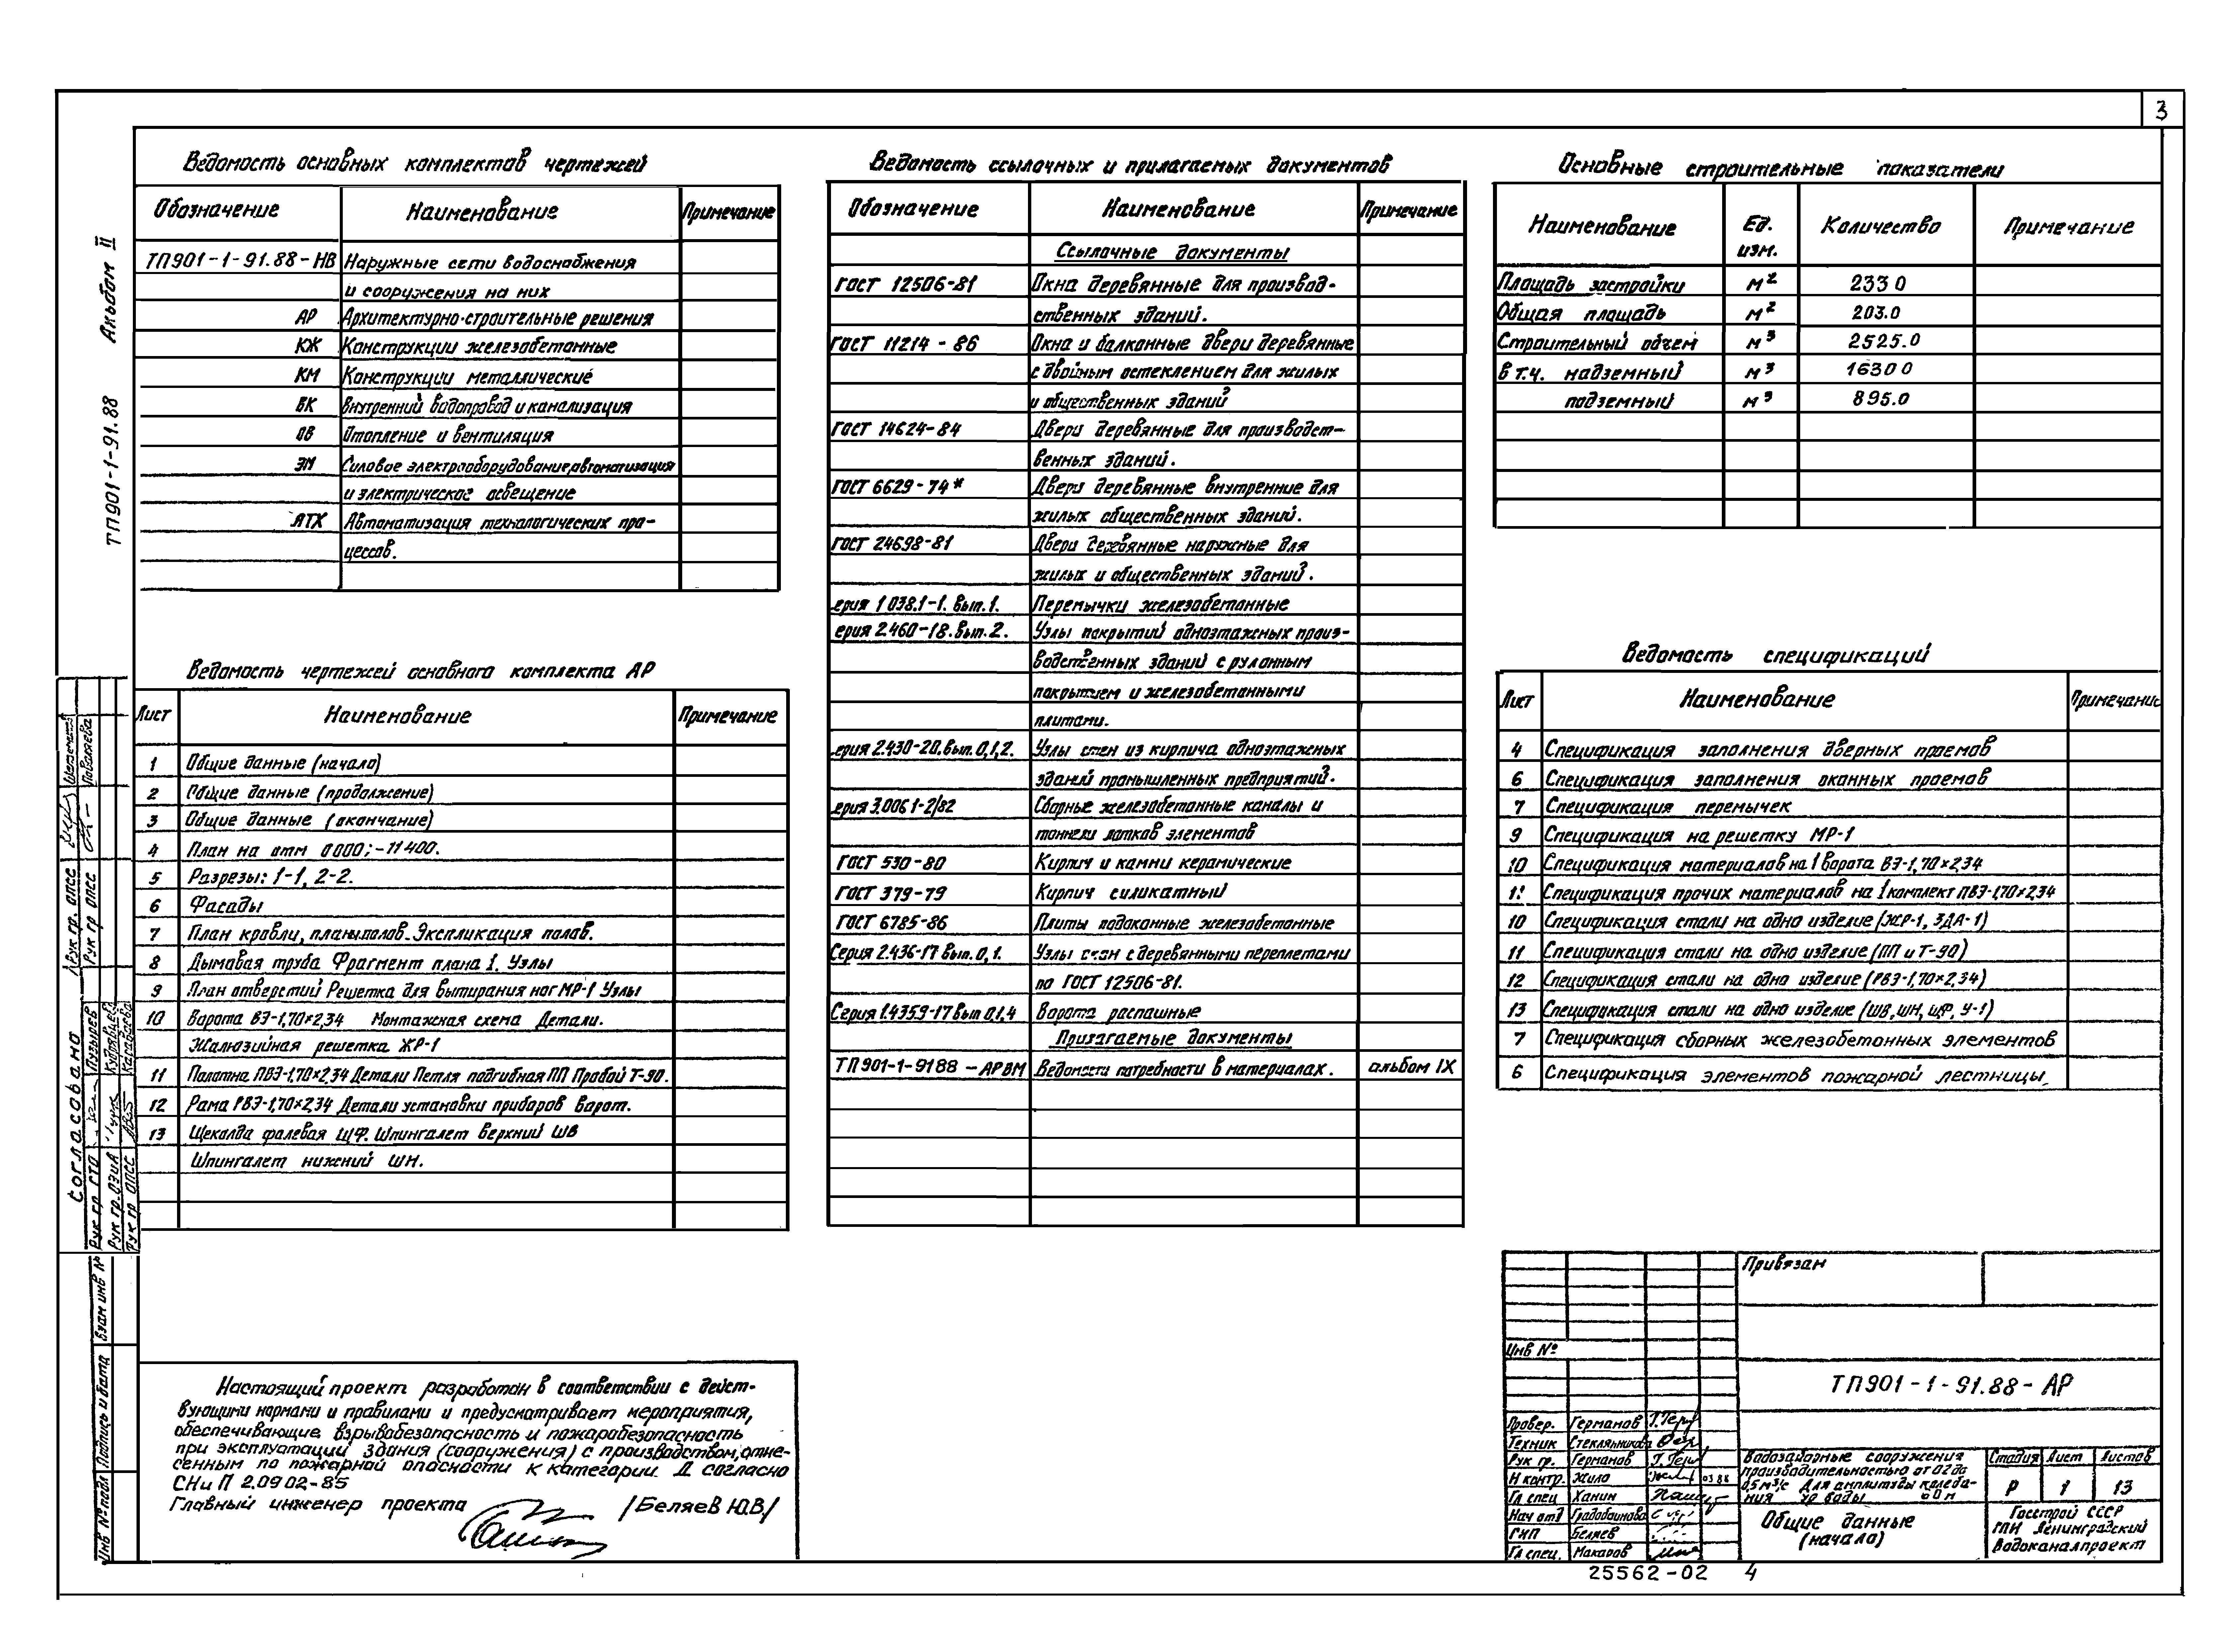 3
Альбом II
ТП901-1-91.88
Ведомость основных комплектов чертежей
Обозначение Наименование Примечание
ТП901-1-91.88-НВ Наружные сети водоснабжения
и сооружения на них
АР Архитектурно-строительные решения
КЖ Конструкции железобетонные
КМ Конструкции металлические
ВК Внутренний водопровод и канализация
ОВ Отопление и вентиляция
ЭМ Силовое электрооборудование, автоматизация
и электрическое освещение
АТХ Автоматизация технологических про-
цессов.
Ведомость чертежей основного комплекта АР
Лист Наименование Примечание
1 Общие данные (начало)
2 Общие данные (продолжение)
3 Общие данные (окончание)
4 План на отм 0000; -11400.
5 Разрезы: 1-1, 2-2.
6 Фасады
7 План кровли, планы полов. Экспликация полов.
8 Дымовая труба Фрагмент плана 1. Узлы
9 План отверстий Решетка для вытирания ног МР-1 Узлы
10 Ворота ВЭ-1,70×2,34 Монтажная схема Детали.
Жалюзийная решетка ЖР-1
11 Полотна ПВЭ-1,70×2,34 Детали Петля подгибная ПП Пробой Т-90.
12 Рама РВЭ-1,70×2,34 Детали установки приборов ворот.
13 Щеколда фалевая ЩФ. Шпингалет верхний ШВ
Шпингалет нижний ШН.
Настоящий проект разработан в соответствии с дейст-
вующими нормами и правилами и предусматривает мероприятия,
обеспечивающие взрывобезопасность и пожаробезопасность
при эксплуатации здания (сооружения) с производством, отне-
сенным по пожарной опасности к категории Д согласно
СНиП 2.09 02-85
Главный инженер проекта /Беляев Ю.В./
Ведомость ссылочных и прилагаемых документов
Обозначение Наименование Примечание
Ссылочные документы
ГОСТ 12506-81 Окна деревянные для производ-
ственных зданий.
ГОСТ 11214-86 Окна и балконные двери деревянные
с двойным остеклением для жилых
и общественных зданий
ГОСТ 14624-84 Двери деревянные для производст-
венных зданий.
ГОСТ 6629-74* Двери деревянные внутренние для
жилых общественных зданий.
ГОСТ 24698-81 Двери деревянные наружные для
жилых и общественных зданий.
ерия 1 038.1-1. вып. 1. Перемычки железобетонные
ерия 2.460-18. вып. 2. Узлы покрытий одноэтажных произ-
водственных зданий с рулонным
покрытием и железобетонными
плитами.
ерия 2.430-20. вып. 0,1,2. Узлы стен из кирпича одноэтажных
зданий промышленных предприятий.
ерия 3.006 1-2/82 Сборные железобетонные каналы и
тоннели лотков элементов
ГОСТ 530-80 Кирпич и камни керамические
ГОСТ 379-79 Кирпич силикатный
ГОСТ 6785-86 Плиты подоконные железобетонные
Серия 2.436-17 вып. 0,1. Узлы окон с деревянными переплетами
по ГОСТ 12506-81.
Серия 1.4359-17 вып 0,1,4 Ворота распашные
Прилагаемые документы
ТП901-1-9188-АРВМ Ведомости потребности в материалах. альбом IX
Основные строительные показатели
Наименование Ед. изм. Количество Примечание
Площадь застройки м² 233 0
Общая площадь м² 203.0
Строительный объем м³ 2525.0
в т.ч. надземный м³ 1630 0
подземный м³ 895.0
Ведомость спецификаций
Лист Наименование Примечание
4 Спецификация заполнения дверных проемов
6 Спецификация заполнения оконных проемов
7 Спецификация перемычек
9 Спецификация на решетку МР-1
10 Спецификация материалов на 1 ворота ВЭ-1,70×2,34
11 Спецификация прочих материалов на 1 комплект ПВЭ-1,70×2,34
10 Спецификация стали на одно изделие (ЖР-1, ЗДА-1)
11 Спецификация стали на одно изделие (ПП и Т-90)
12 Спецификация стали на одно изделие (РВЭ-1,70×2,34)
13 Спецификация стали на одно изделие (ШВ, ШН, ЩФ, У-1)
7 Спецификация сборных железобетонных элементов
6 Спецификация элементов пожарной лестницы.
Привязан
Инв №
ТП901-1-91.88-АР
Провер. Германов
Техник Стеклянникова
Рук гр. Германов
Н контр. Жило 03 88
Гл спец Ханин
Нач отд
ГИП Беляев
Гл спец. Макаров
Водозаборные сооружения
производительностью от 02 до
0,5 м³/с для амплитуды колеба-
ния ур воды 6 0 м
Стадия Лист Листов
Р 1 13
Общие данные
(начало)
Госстрой СССР
ГПИ Ленинградский
Водоканалпроект
25562-02 4
Согласовано
Рук гр. ОПСС
Рук гр ОПСС
Рук гр. СТО Пузырев
Рук гр. ОЭиА
Рук гр ОПСС
Взам инв №
Подпись и дата
Инв № подл